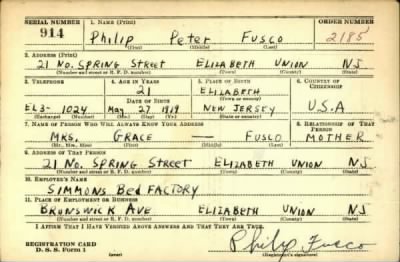 SERIAL NUMBER 1. NAME (Print) ORDER NUMBER
914 PHILIP PETER FUSCO 2185
(First) (Middle) (Last)
2. ADDRESS (Print)
21 NO. SPRING STREET ELIZABETH UNION NJ
(Number and street or R. F. D. number) (Town) (County) (State)
3. TELEPHONE 4. AGE IN YEARS 5. PLACE OF BIRTH 6. COUNTRY OF CITIZENSHIP
21 ELIZABETH
DATE OF BIRTH (Town or county)
EL3- 1024 MAY 27 1919 NEW JERSEY U.S.A
(Exchange) (Number) (Mo.) (Day) (Yr.) (State or country)
7. NAME OF PERSON WHO WILL ALWAYS KNOW YOUR ADDRESS 8. RELATIONSHIP OF THAT PERSON
MRS. GRACE — FUSCO MOTHER
(Mr., Mrs., Miss) (First) (Middle) (Last)
9. ADDRESS OF THAT PERSON
21 NO. SPRING STREET ELIZABETH UNION NJ
(Number and street or R. F. D. number) (Town) (County) (State)
10. EMPLOYER'S NAME
SIMMONS BED FACTORY
11. PLACE OF EMPLOYMENT OR BUSINESS
BRUNSWICK AVE ELIZABETH UNION NJ
(Number and street or R. F. D. number) (Town) (County) (State)
I AFFIRM THAT I HAVE VERIFIED ABOVE ANSWERS AND THAT THEY ARE TRUE.
REGISTRATION CARD
D. S. S. Form 1 (over) Philip Fusco
(Registrant's signature)